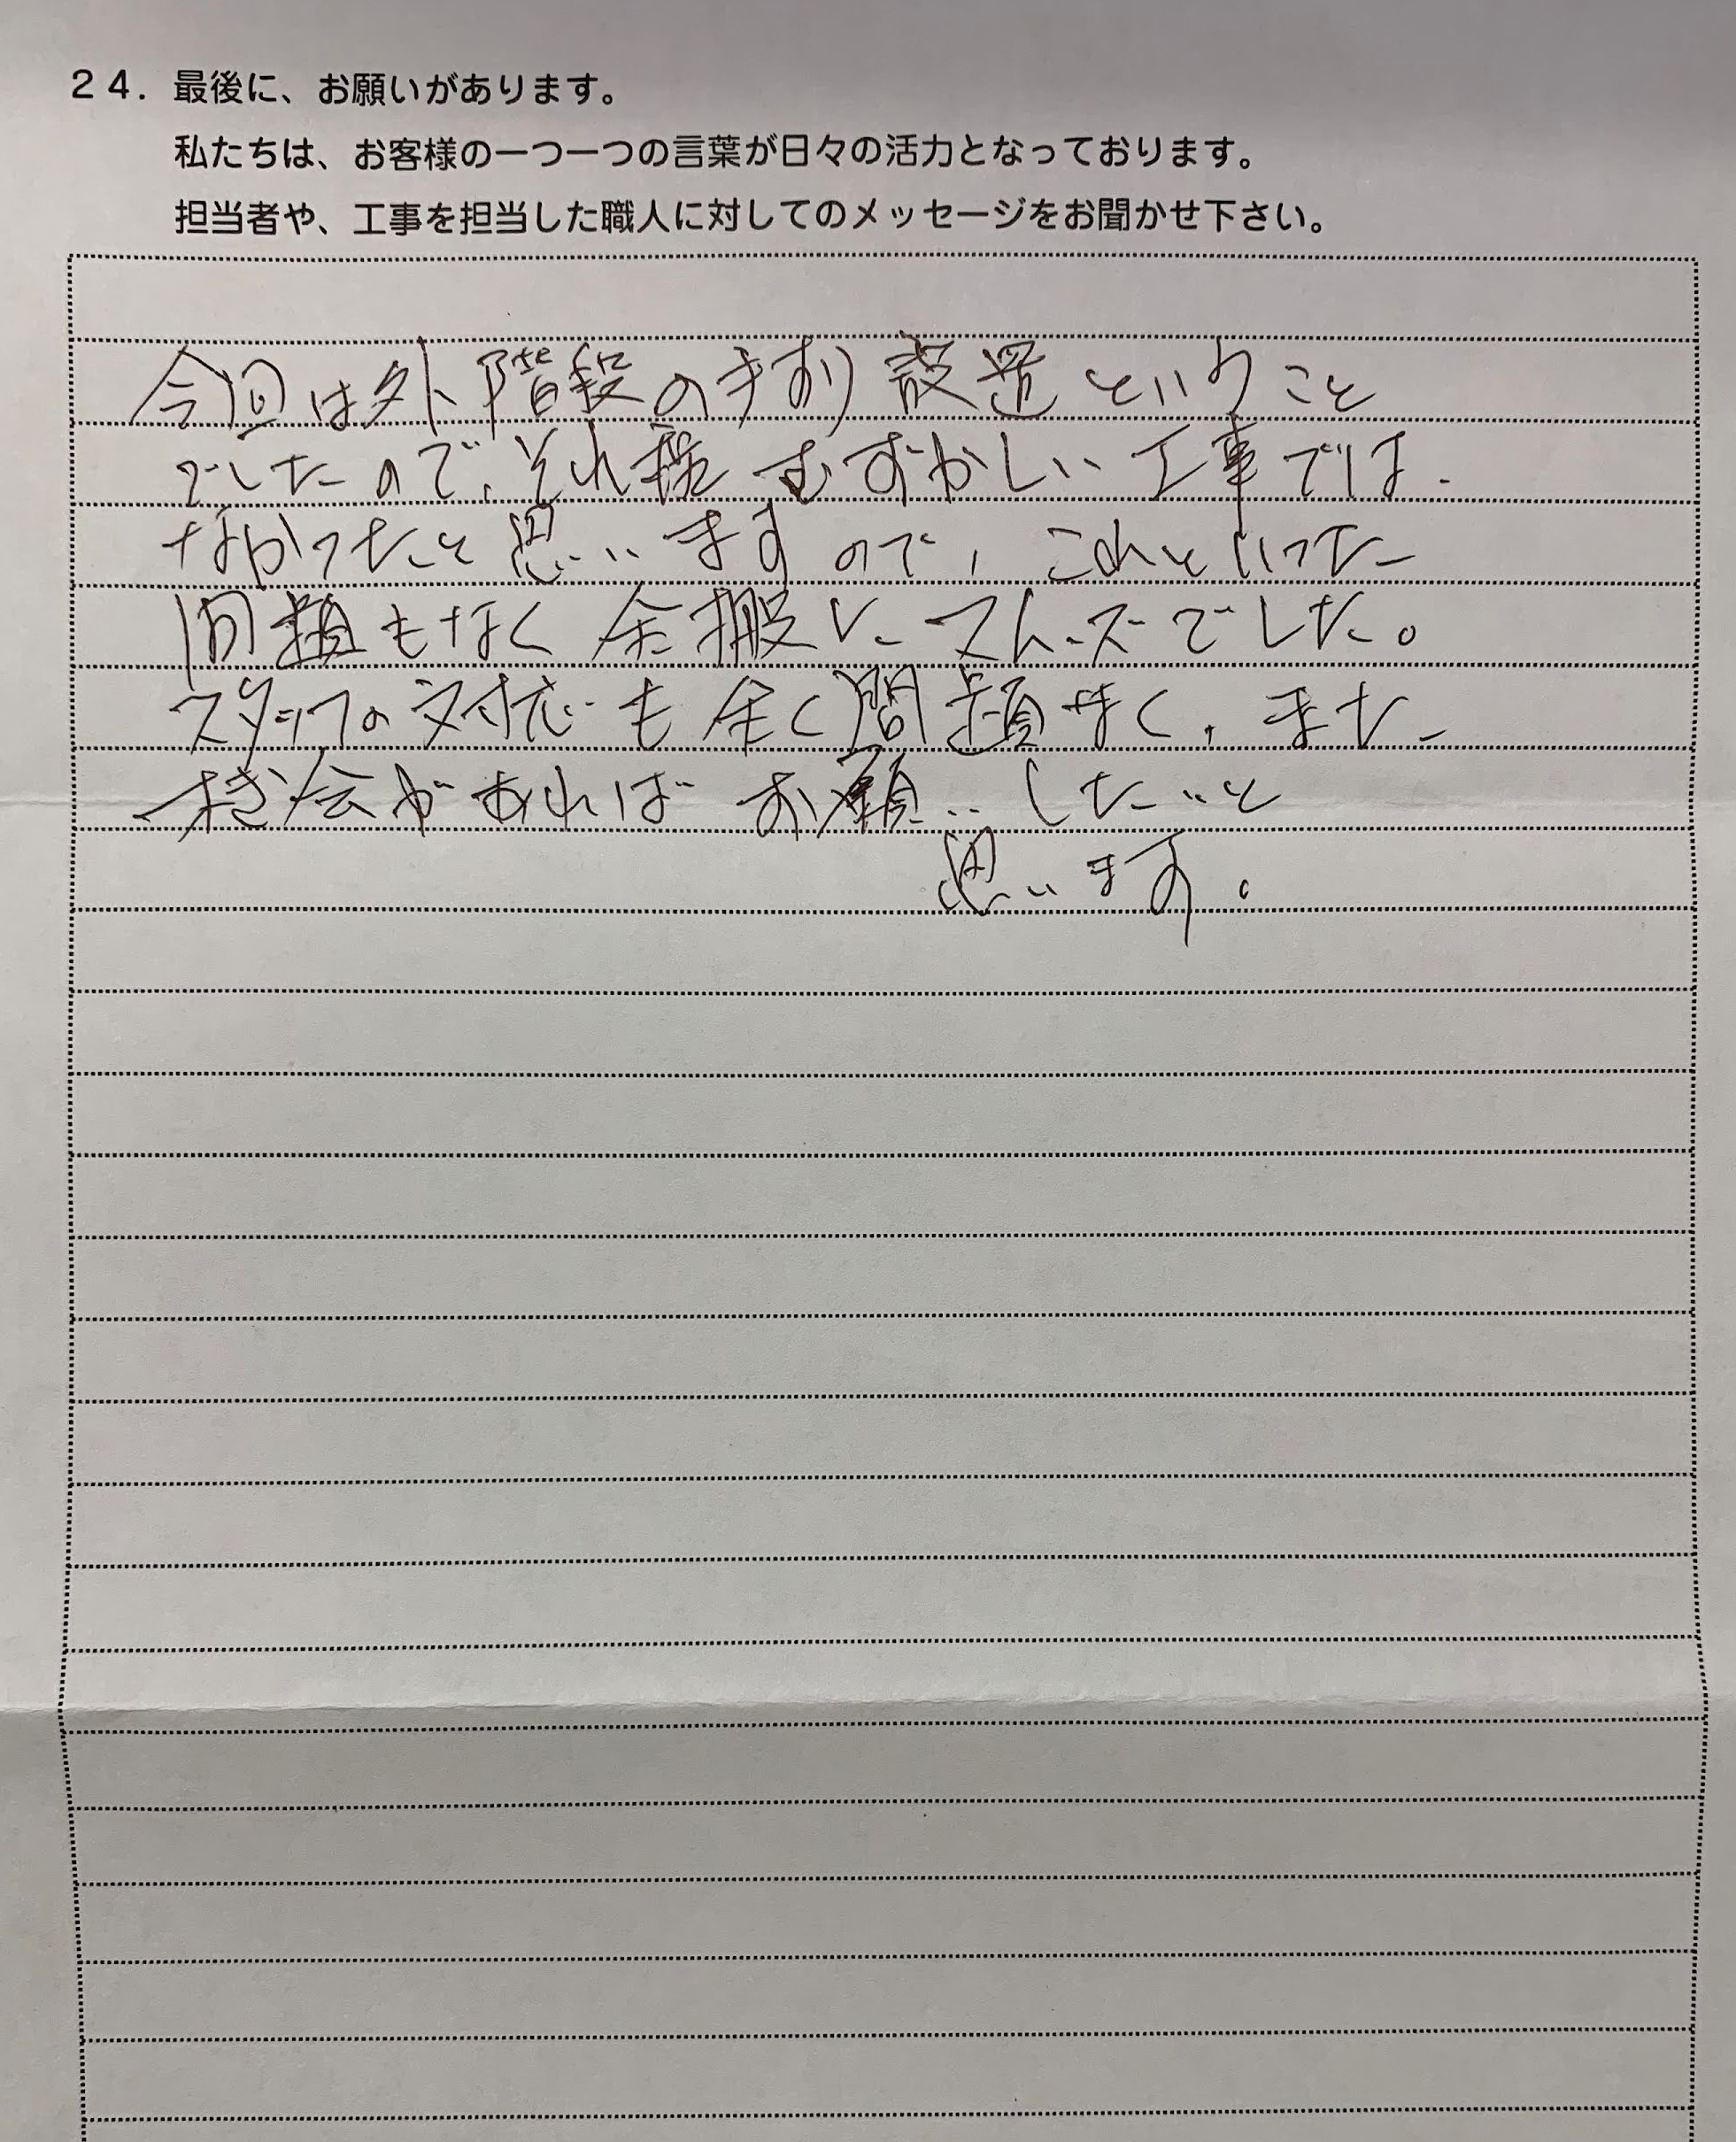 24．最後に、お願いがあります。
私たちは、お客様の一つ一つの言葉が日々の活力となっております。
担当者や、工事を担当した職人に対してのメッセージをお聞かせ下さい。
今回は外階段の手すり設置ということ
でしたので、それ程むずかしい工事では
なかったと思いますので、これといった
問題もなく全搬にスムーズでした。
スタッフの対応も全く問題なく、また
機会があればお願いしたいと
思います。